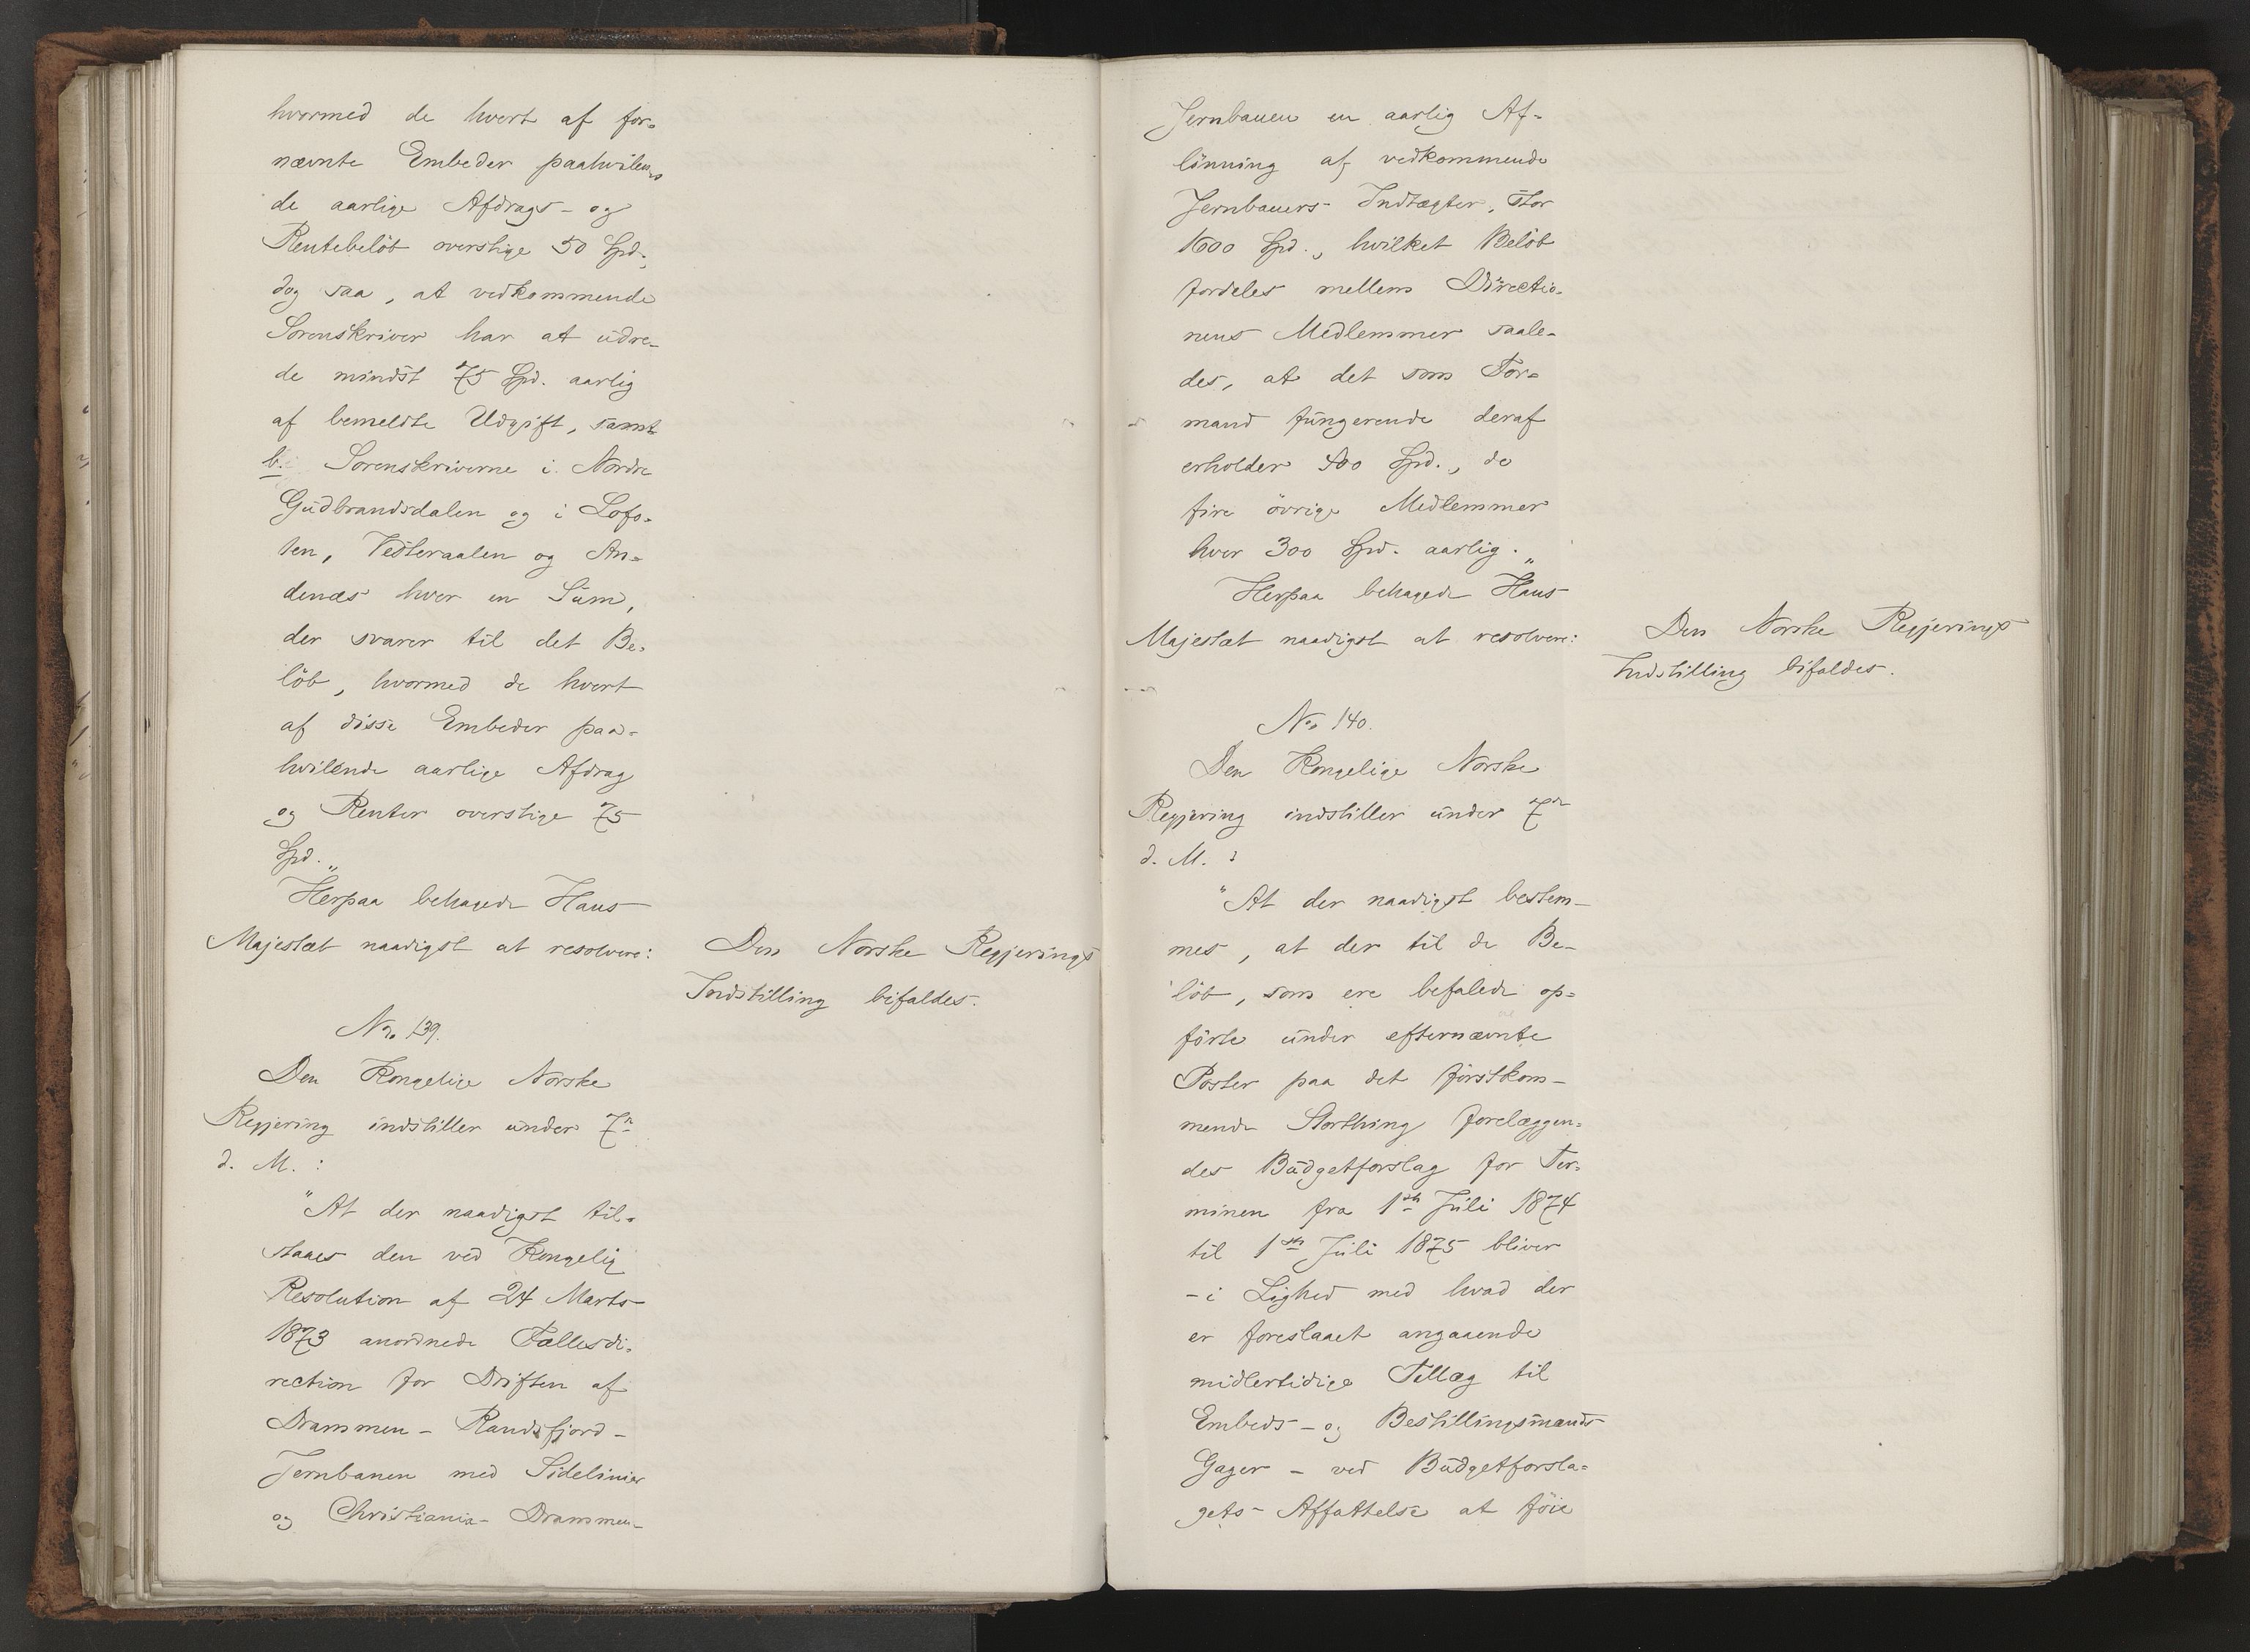 hvormed de hvert af for-
nævnte Embeder paahvilen-
de aarlige Afdrags- og
Rentebelöb overstige 50 Spd.;
dog saa, at vedkommende
Sorenskriver har at udre-
de mindst 75 Spd. aarlig
af bemeldte Udgift, samt
b. Sorenskriverne i Nordre
Gudbrandsdalen og i Lofo-
ten, Vesteraalen og An-
denæs hver en Sum,
der svarer til det Be-
löb, hvormed de hvert
af disse Embeder paa-
hvilende aarlige Afdrag
og Renter overstige 75
Spd."
Herpaa behagede Hans
Majestæt naadigst at resolvere:
Den Norske Regjerings
Indstilling bifaldes.
No. 139.
Den Kongelige Norske
Regjering indstiller under 7n
d. M.:
"At der naadigst til-
staaes den ved Kongelig
Resolution af 24 Marts
1873 anordnede Fællesdi-
rection for Driften af
Drammen-Randsfjord-
Jernbanen med Sidelinier
og Christiania-Drammen-
Jernbanen en aarlig Af-
lönning af vedkommende
Jernbaners Indtægter, stor
1600 Spd., hvilket Belöb
fordeles mellem Directio-
nens Medlemmer saale-
des, at det som For-
mand fungerende deraf
erholder 400 Spd., de
fire övrige Medlemmer
hver 300 Spd. aarlig."
Herpaa behagede Hans
Majestæt naadigst at resolvere:
Den Norske Regjerings
Indstilling bifaldes.
No. 140.
Den Kongelige Norske
Regjering indstiller under 7de
d. M.:
"At der naadigst bestem-
mes, at der til de Be-
löb, som ere befalede op-
förte under efternævnte
Poster paa det förstkom-
mende Storthing forelæggen-
des Budgetforslag for Ter-
minen fra 1ste Juli 1874
til 1ste Juli 1875 bliver
- i Lighed med hvad der
er foreslaaet angaaende
midlertidige Tillæg til
Embeds- og Bestillingsmænds
Gager - ved Budgetforsla-
gets Affattelse at föie